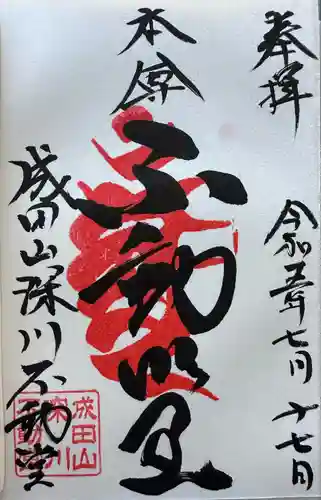 奉拝
令和五年七月十七日
本尊
不動明王
成田山深川不動堂
成田山